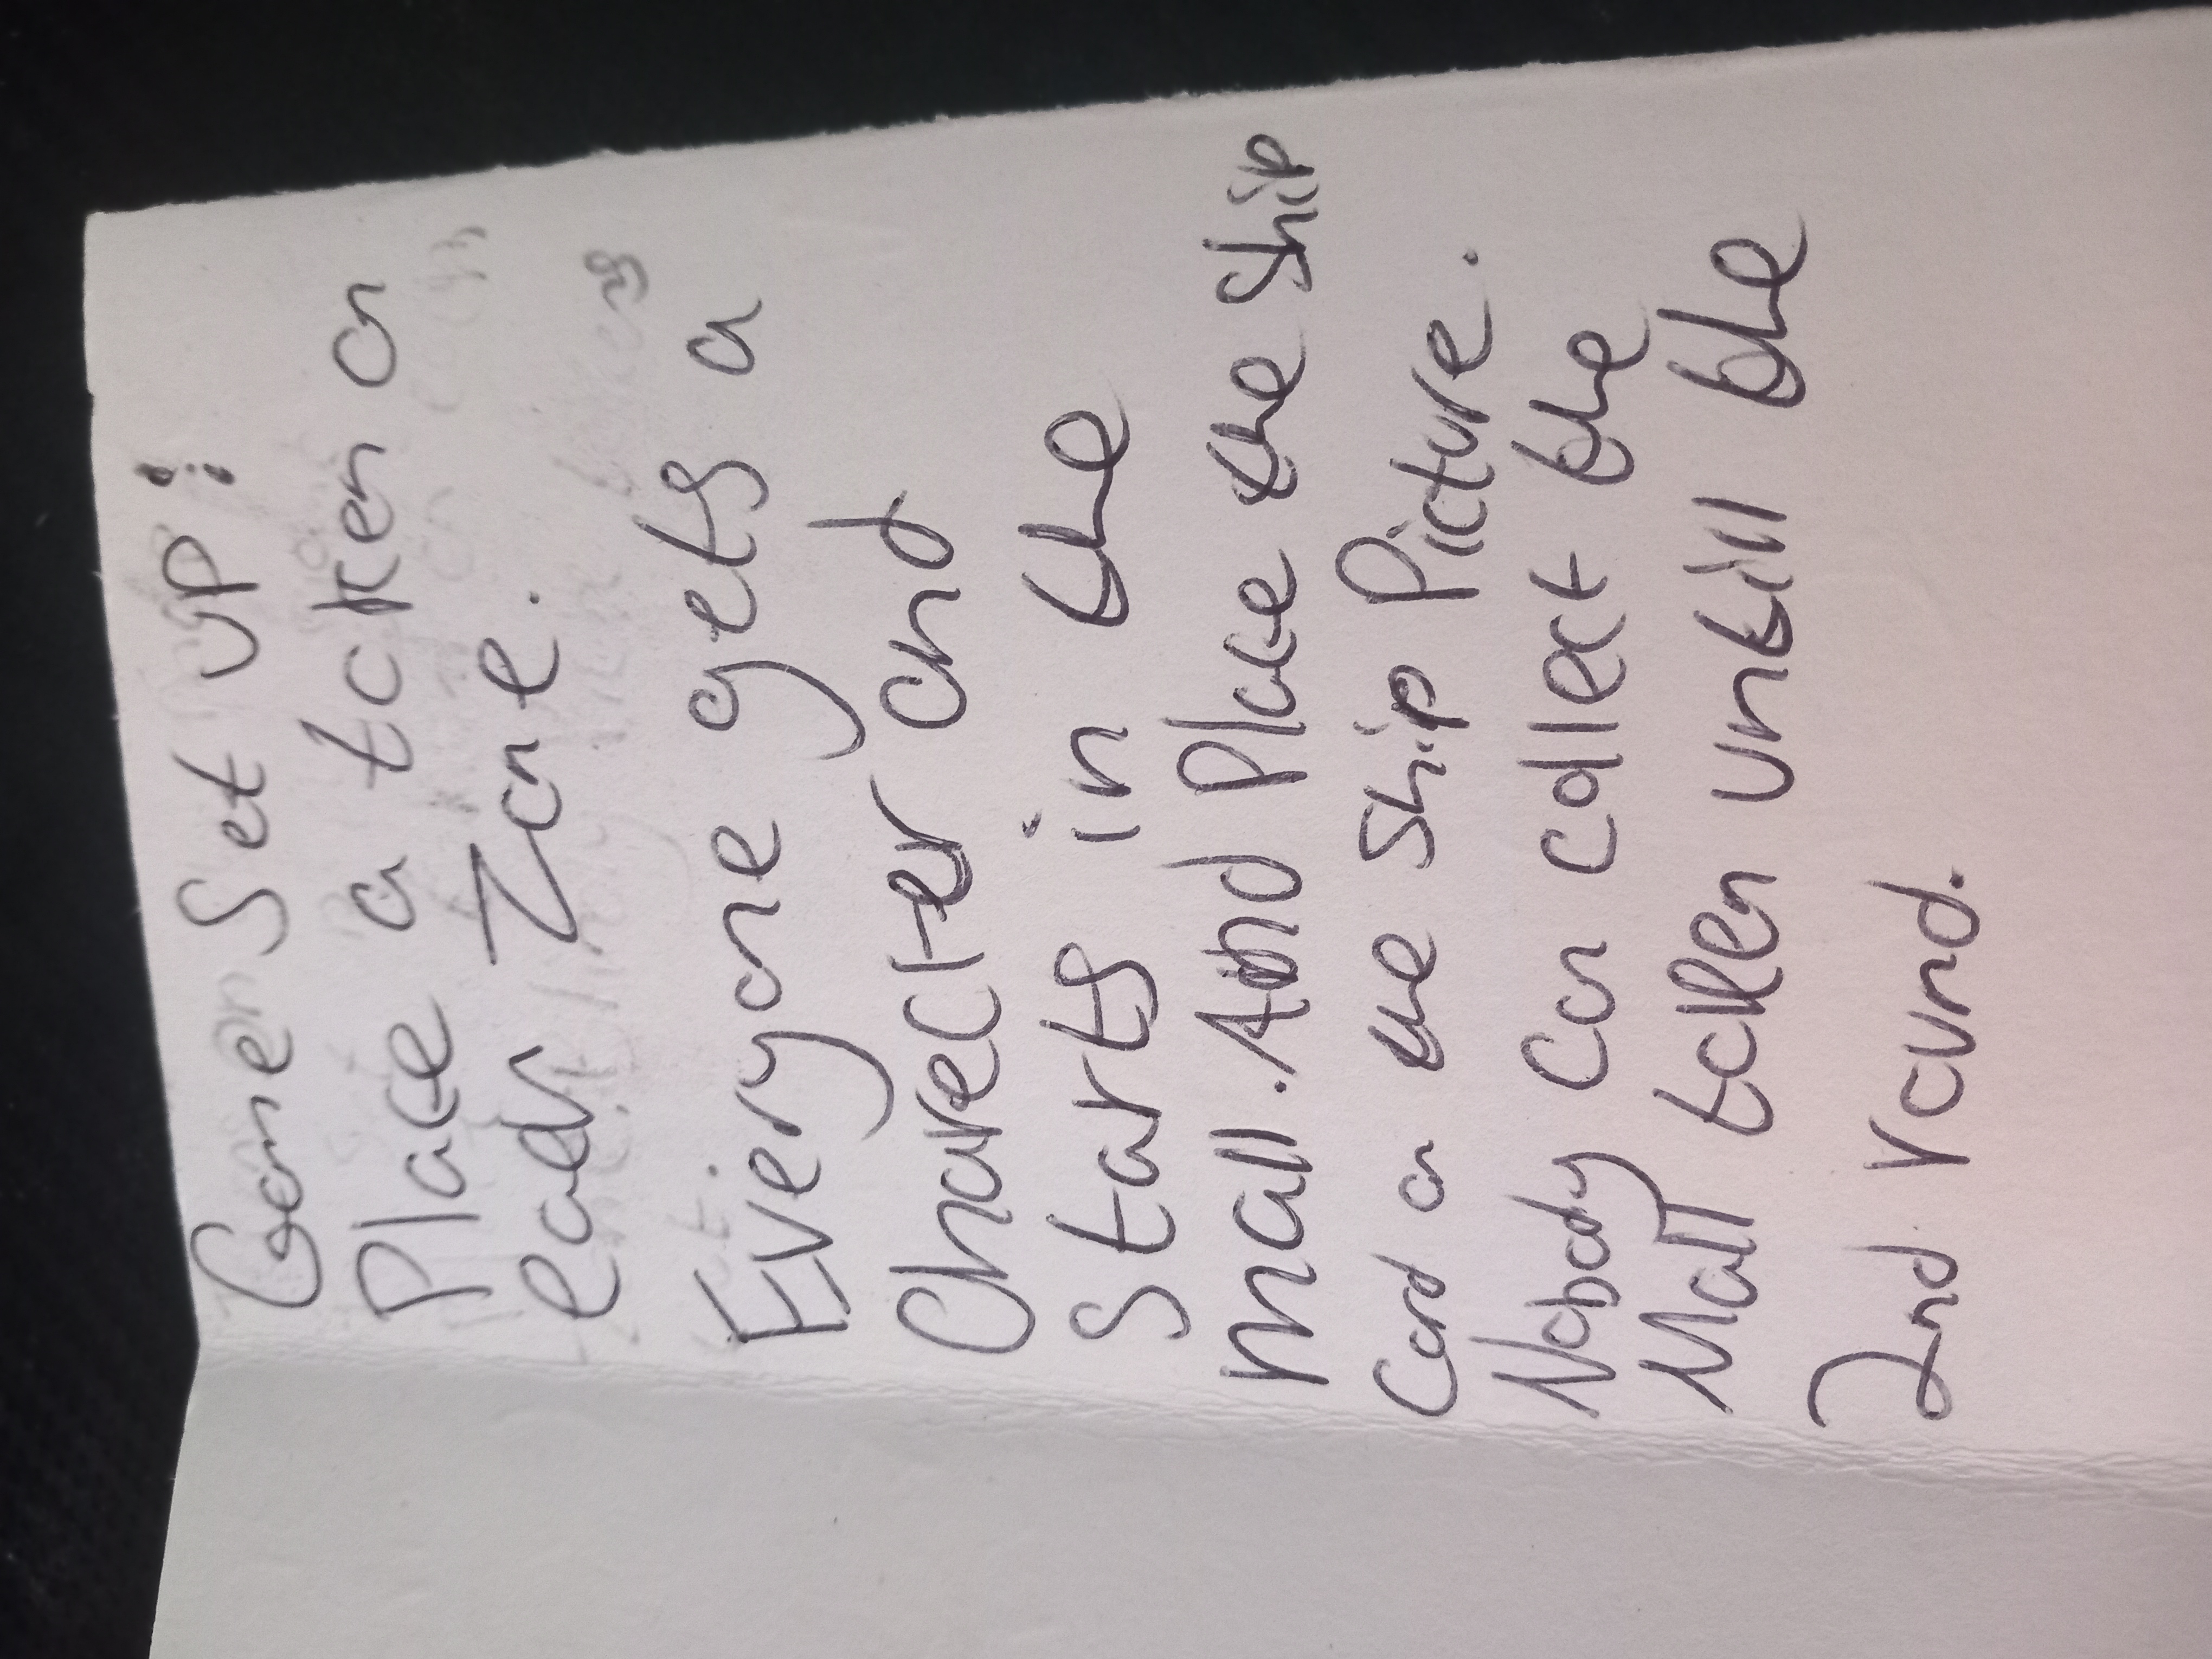 Game Set up:
Place a token on
each Zone.
Everyone gets a
Charecter and
starts in the
mall. And Place the Ship
Card on the Ship Picture.
Nobody Can collect the
Mall token untill the
2nd round.